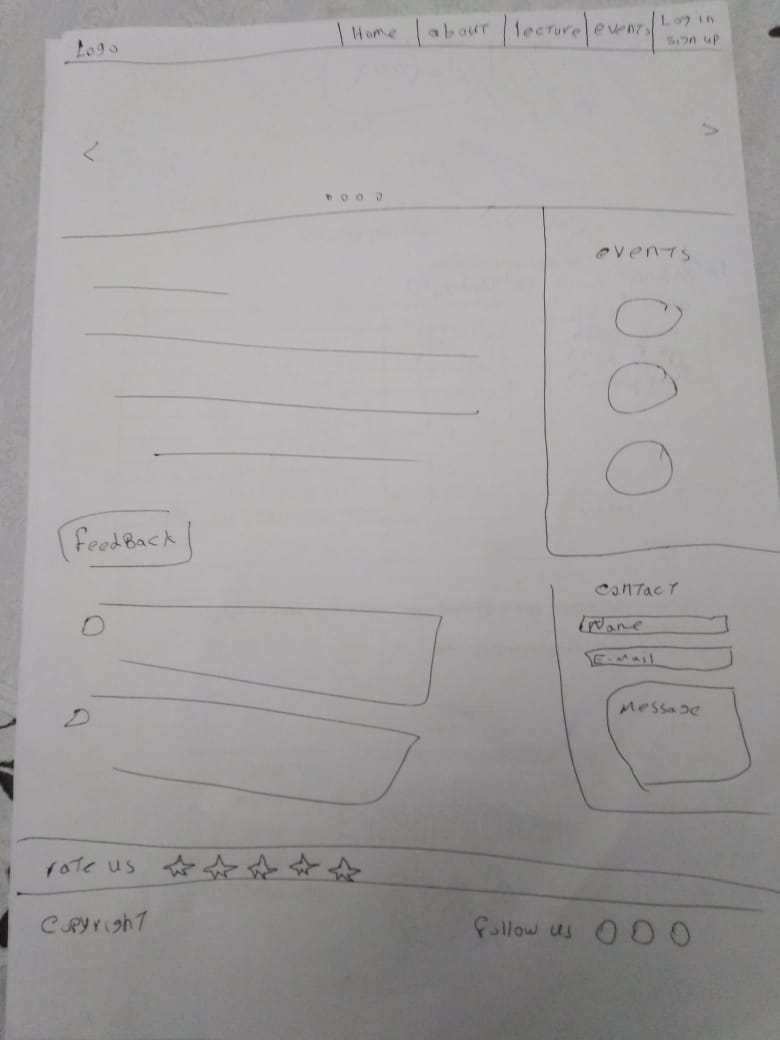 Logo
Home
about
lecture
events
Log in
sign up
<
>
events
FeedBack
contact
Name
E-Mail
Message
rate us
Copyright
Follow us